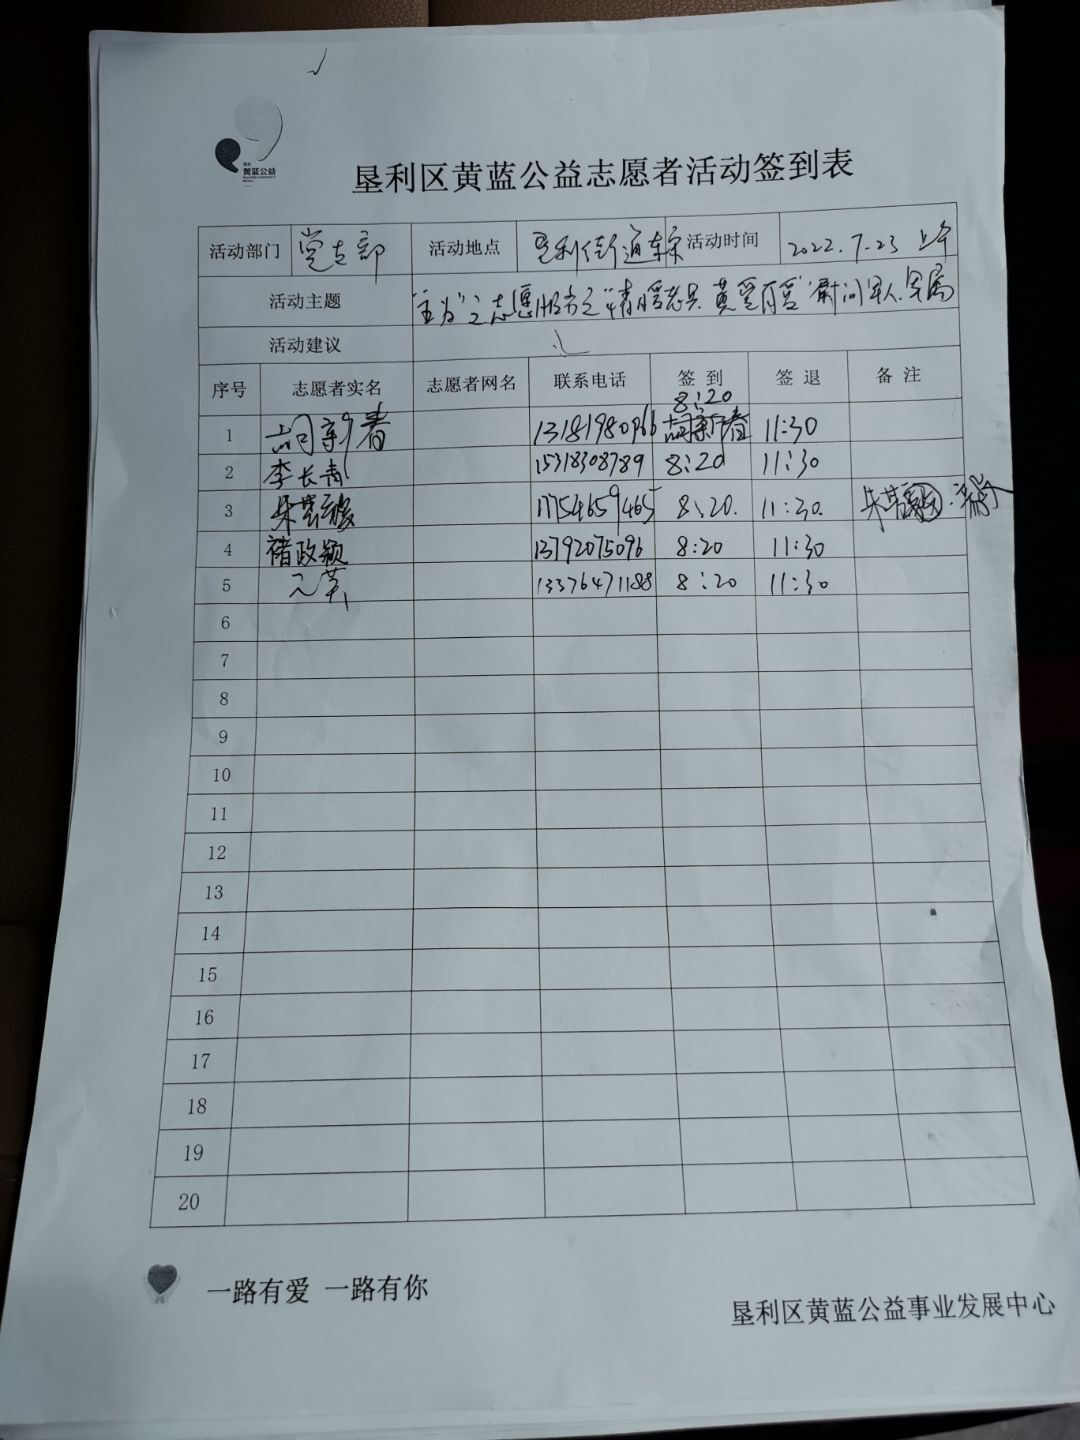 黄蓝公益
垦利区黄蓝公益志愿者活动签到表
活动部门 党支部 活动地点 垦利街道 活动时间 2022.7-23 上午
活动主题 志愿服务之"情暖老兵 慰问军人军属
活动建议
序号 志愿者实名 志愿者网名 联系电话 签到 签退 备注
8:20
1 胡新春 13181980966 胡新春 11:30
2 李长青 15318308789 8:20 11:30
3 17754659465 8:20. 11:30.
4 褚政颖 13792075096 8:20 11:30
5 13376471188 8:20 11:30
6
7
8
9
10
11
12
13
14
15
16
17
18
19
20
一路有爱 一路有你
垦利区黄蓝公益事业发展中心